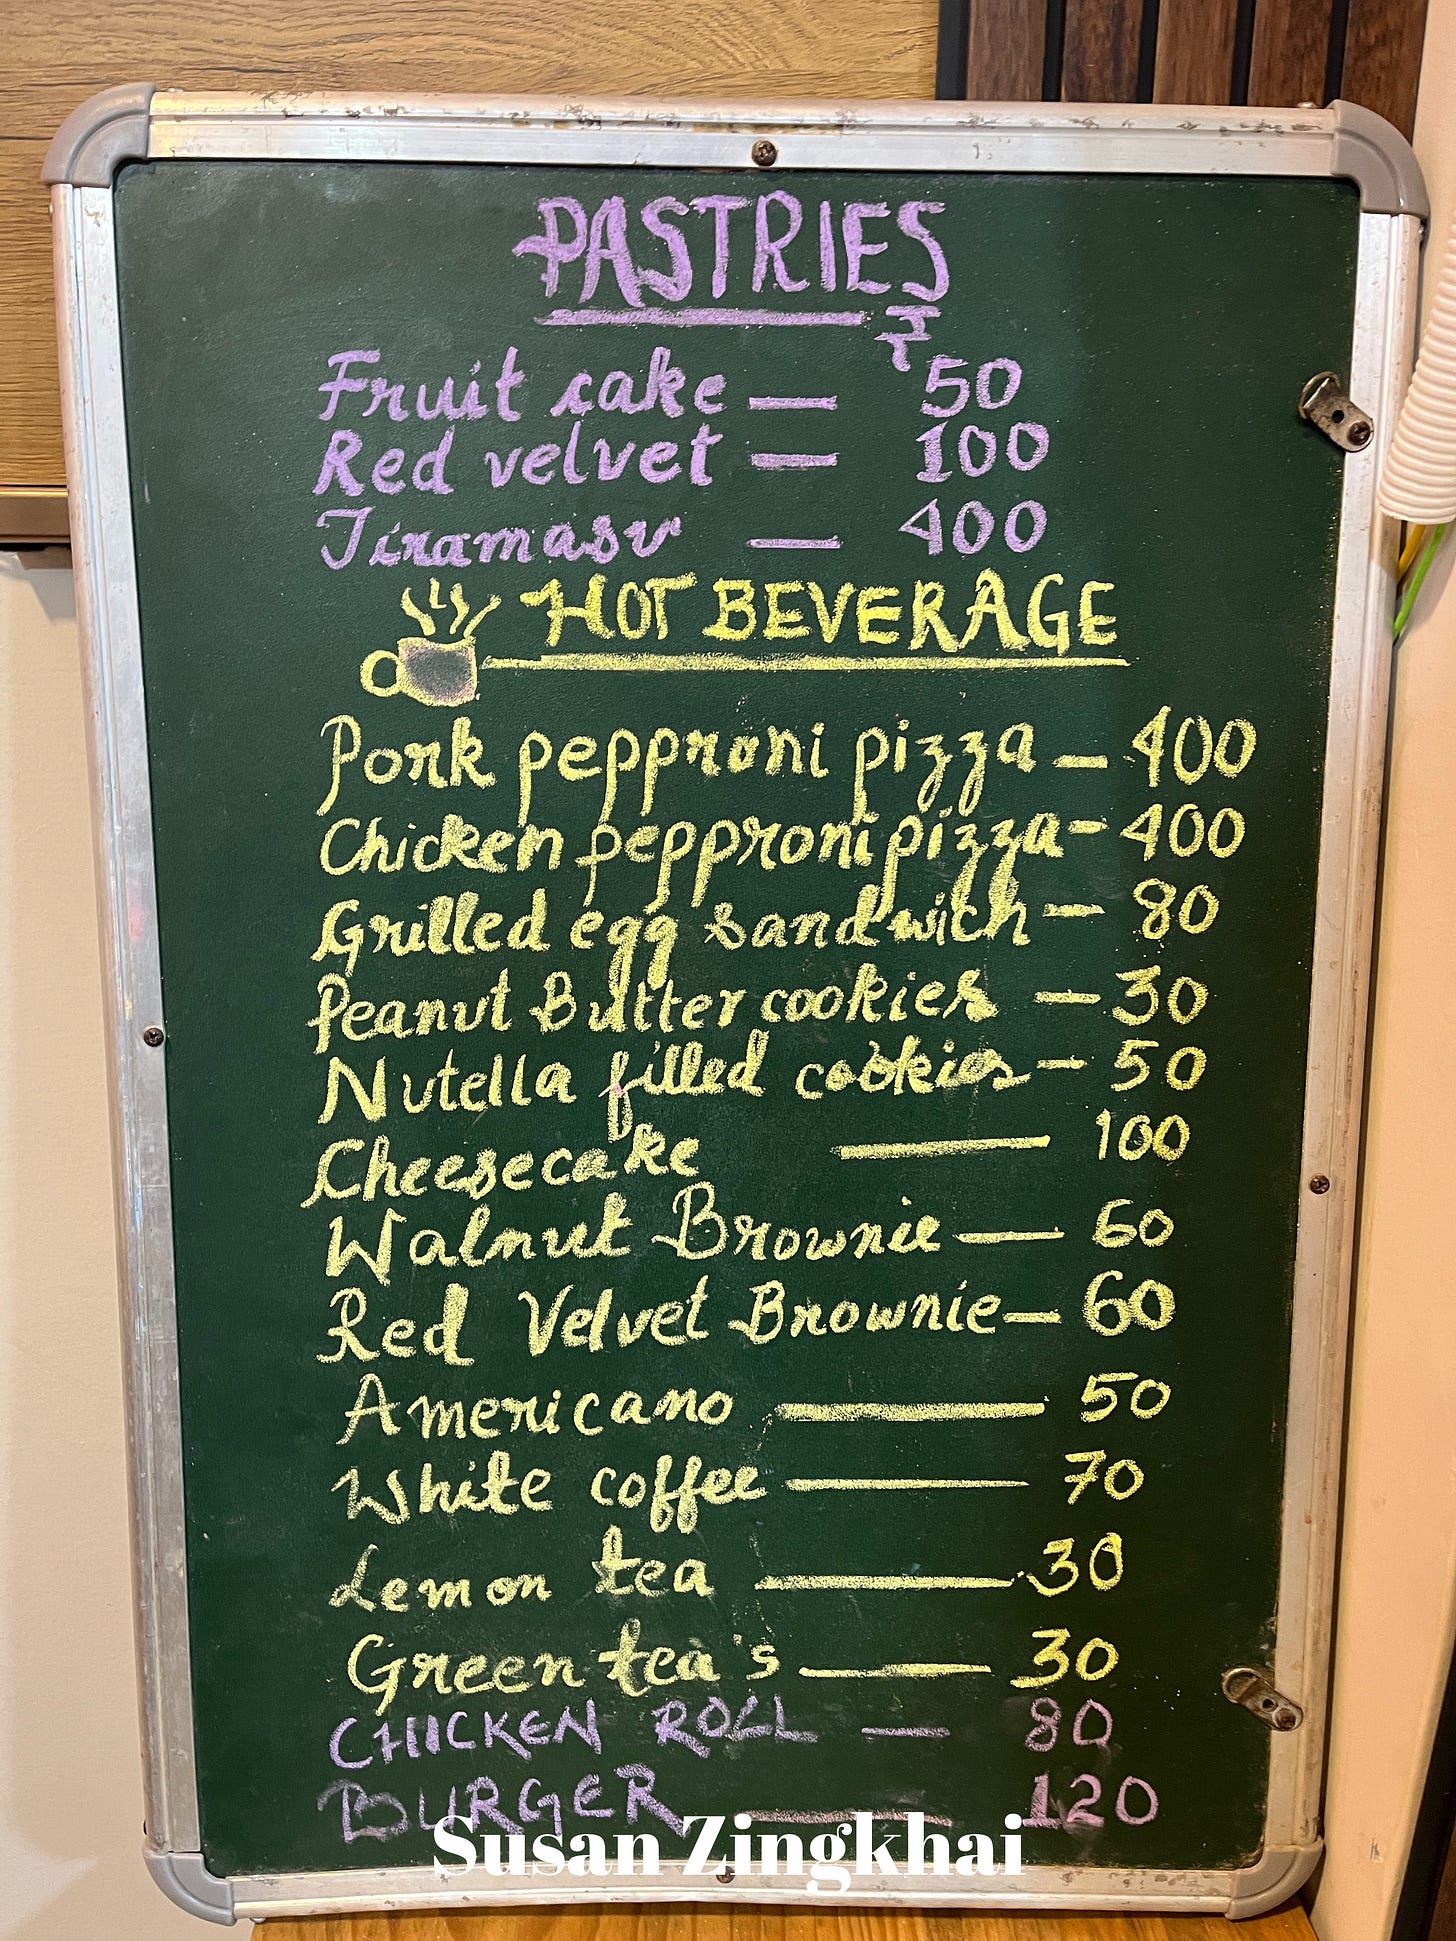 PASTRIES
₹
Fruit cake — 50
Red velvet — 100
Tiramasu — 400
HOT BEVERAGE
Pork pepproni pizza — 400
Chicken pepproni pizza — 400
Grilled egg sandwich — 80
Peanut Butter cookies — 30
Nutella filled cookies — 50
Cheesecake — 100
Walnut Brownie — 60
Red Velvet Brownie — 60
Americano — 50
White coffee — 70
Lemon tea — 30
Green tea's — 30
CHICKEN ROLL — 80
BURGER — 120
Susan Zingkhai